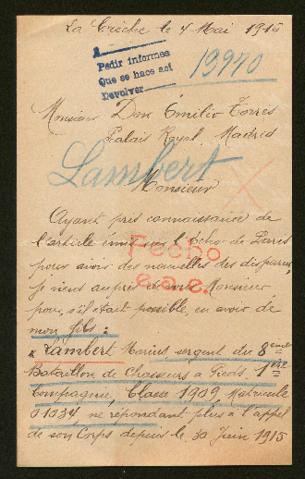 La Crèche le 7 Mai 1916
A
Pedir informes
Que se hace así
Devolver
13970
Monsieur Don Emilio Torres
Palais Royal, Madrid
Lambert
Monsieur
Ayant pris connaissance de
l'article émis sur l'Echo de Paris
pour avoir des nouvelles des disparus,
Fecho
je viens auprès de vous Monsieur
pour, s'il était possible, en avoir de
mon fils :
"Lambert Marius sergent du 8ème
Bataillon de Chasseurs à Pieds 1ère
Compagnie, Classe 1909, Matricule
01034, ne répondant plus à l'appel
de son Corps depuis le 30 Juin 1915